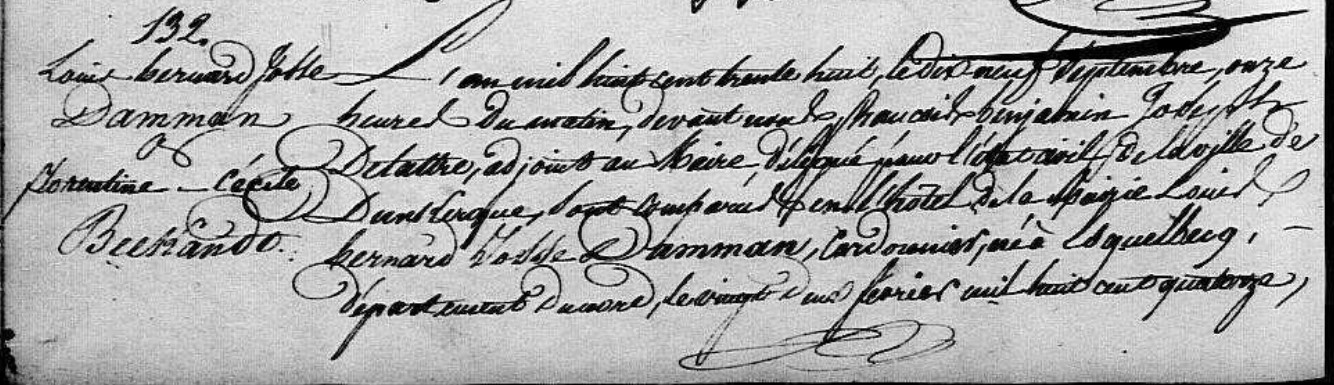 132.
Louis bernard Josse
Damman
&
florentine - cécile
Beekandt.
L'an mil huit cent trente huit, le dix neuf Septembre, onze
heures du matin, devant nous francois benjamin Joseph
Delattre, adjoint au Maire, délégué pour l'état civil de la ville de
Dunkerque, sont comparus en l'hôtel de la Mairie Louis
bernard Josse Damman, Cordonnier, né à Esquelbecq,
département du nord, le vingt deux février mil huit cent quatorze,